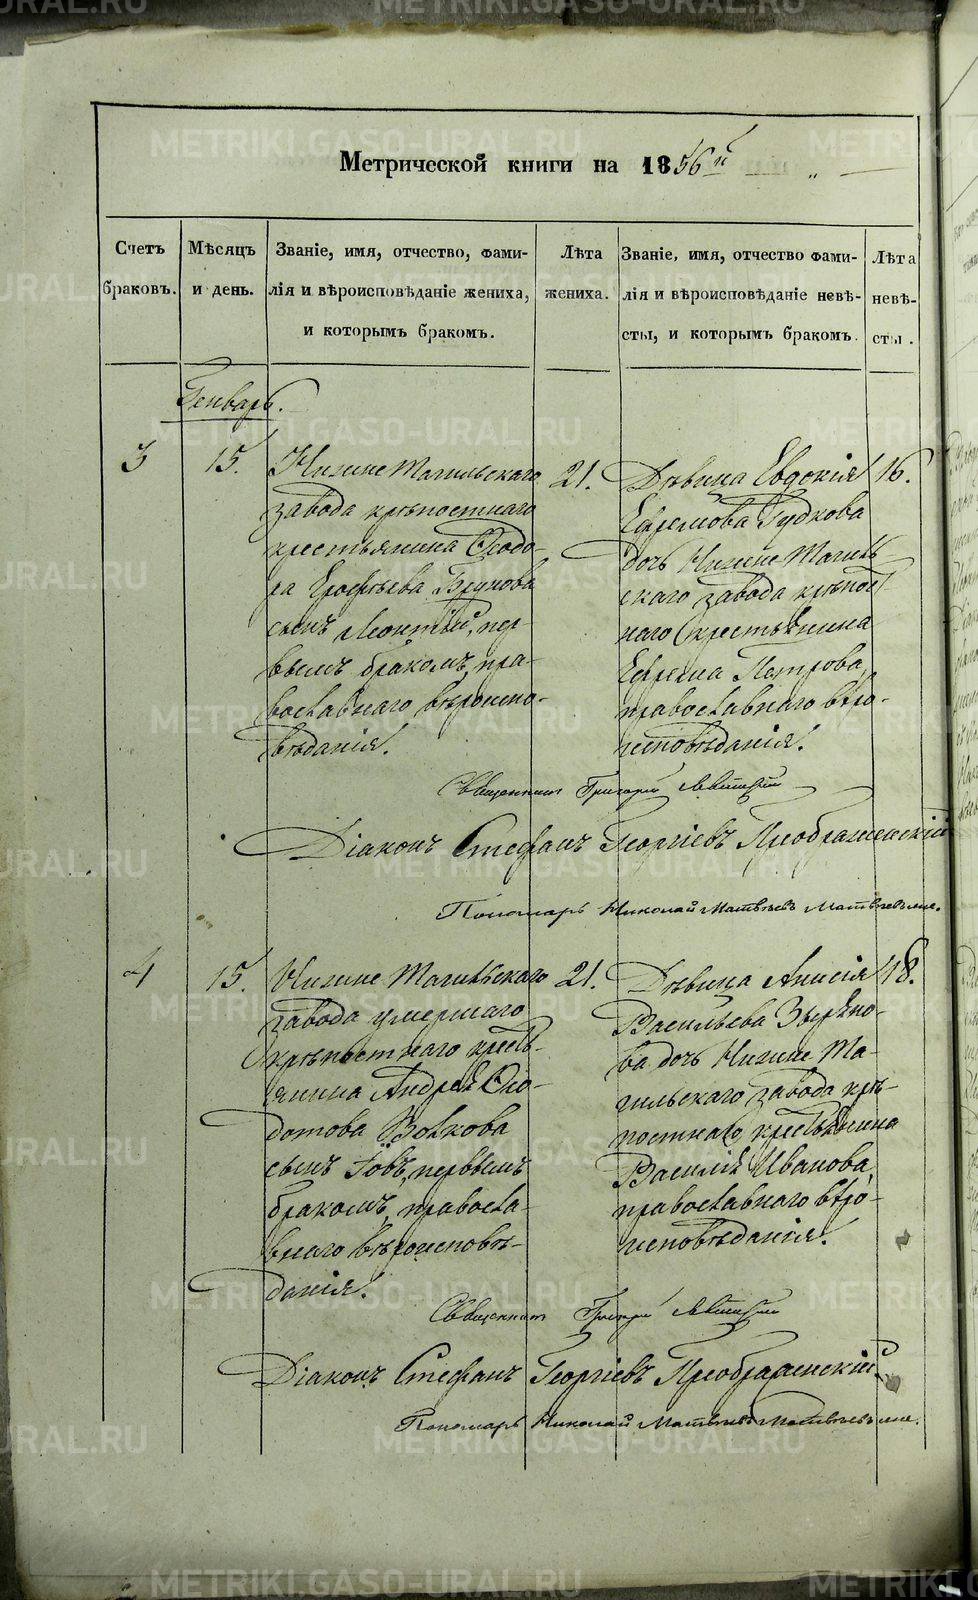 Метрической книги на 1856й
Счетъ браковъ.
Мѣсяцъ и день.
Званіе, имя, отчество, фамилія и вѣроисповѣданіе жениха, и которымъ бракомъ.
Лѣта жениха.
Званіе, имя, отчество фамилія и вѣроисповѣданіе невѣсты, и которымъ бракомъ.
Лѣта невѣсты.
Генварь.
3
15.
Нижне Тагильскаго
завода крѣпостнаго
крестьянина Ѳеодо-
ра Ерофѣева
сынъ Леонтій, пер-
вымъ бракомъ, пра-
вославнаго вѣроиспо-
вѣданія.
21.
Дѣвица Евдокія
Ефремова Гудкова
дочь Нижне Тагиль-
скаго завода крѣпост
наго крестьянина
Ефрема Петрова,
православнаго вѣро-
исповѣданія.
16.
Священникъ Григорій Левитскій
Діаконъ Стефанъ Георгіевъ Преображенскій
Пономарь Николай Матвѣевъ
4
15.
Нижне Тагильскаго
завода умершаго
крѣпостнаго кресть-
янина Андрея Ѳео-
дотова Волкова
сынъ Іовъ, первымъ
бракомъ, правосла-
внаго вѣроисповѣ-
данія.
21.
Дѣвица Анисія
Васильева Звѣрево-
ва дочь Нижне Та-
гильскаго завода крѣ-
постнаго крестьянина
Василія Иванова,
православнаго вѣро-
исповѣданія.
18.
Священникъ Григорій Левитскій
Діаконъ Стефанъ Георгіевъ Преображенскій
Пономарь Николай Матвѣевъ
METRIKI.GASO-URAL.RU